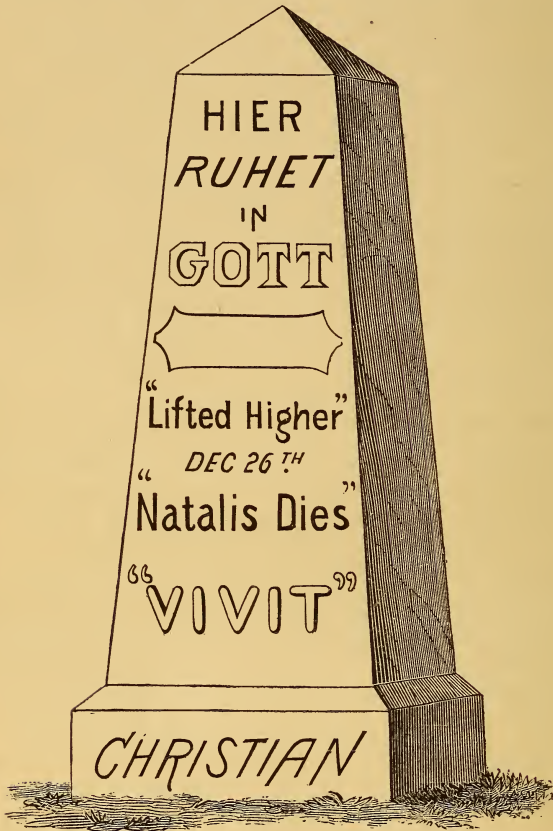 HIER
RUHET
IN
GOTT
"Lifted Higher"
DEC 26TH.
"Natalis Dies"
"VIVIT"
CHRISTIAN